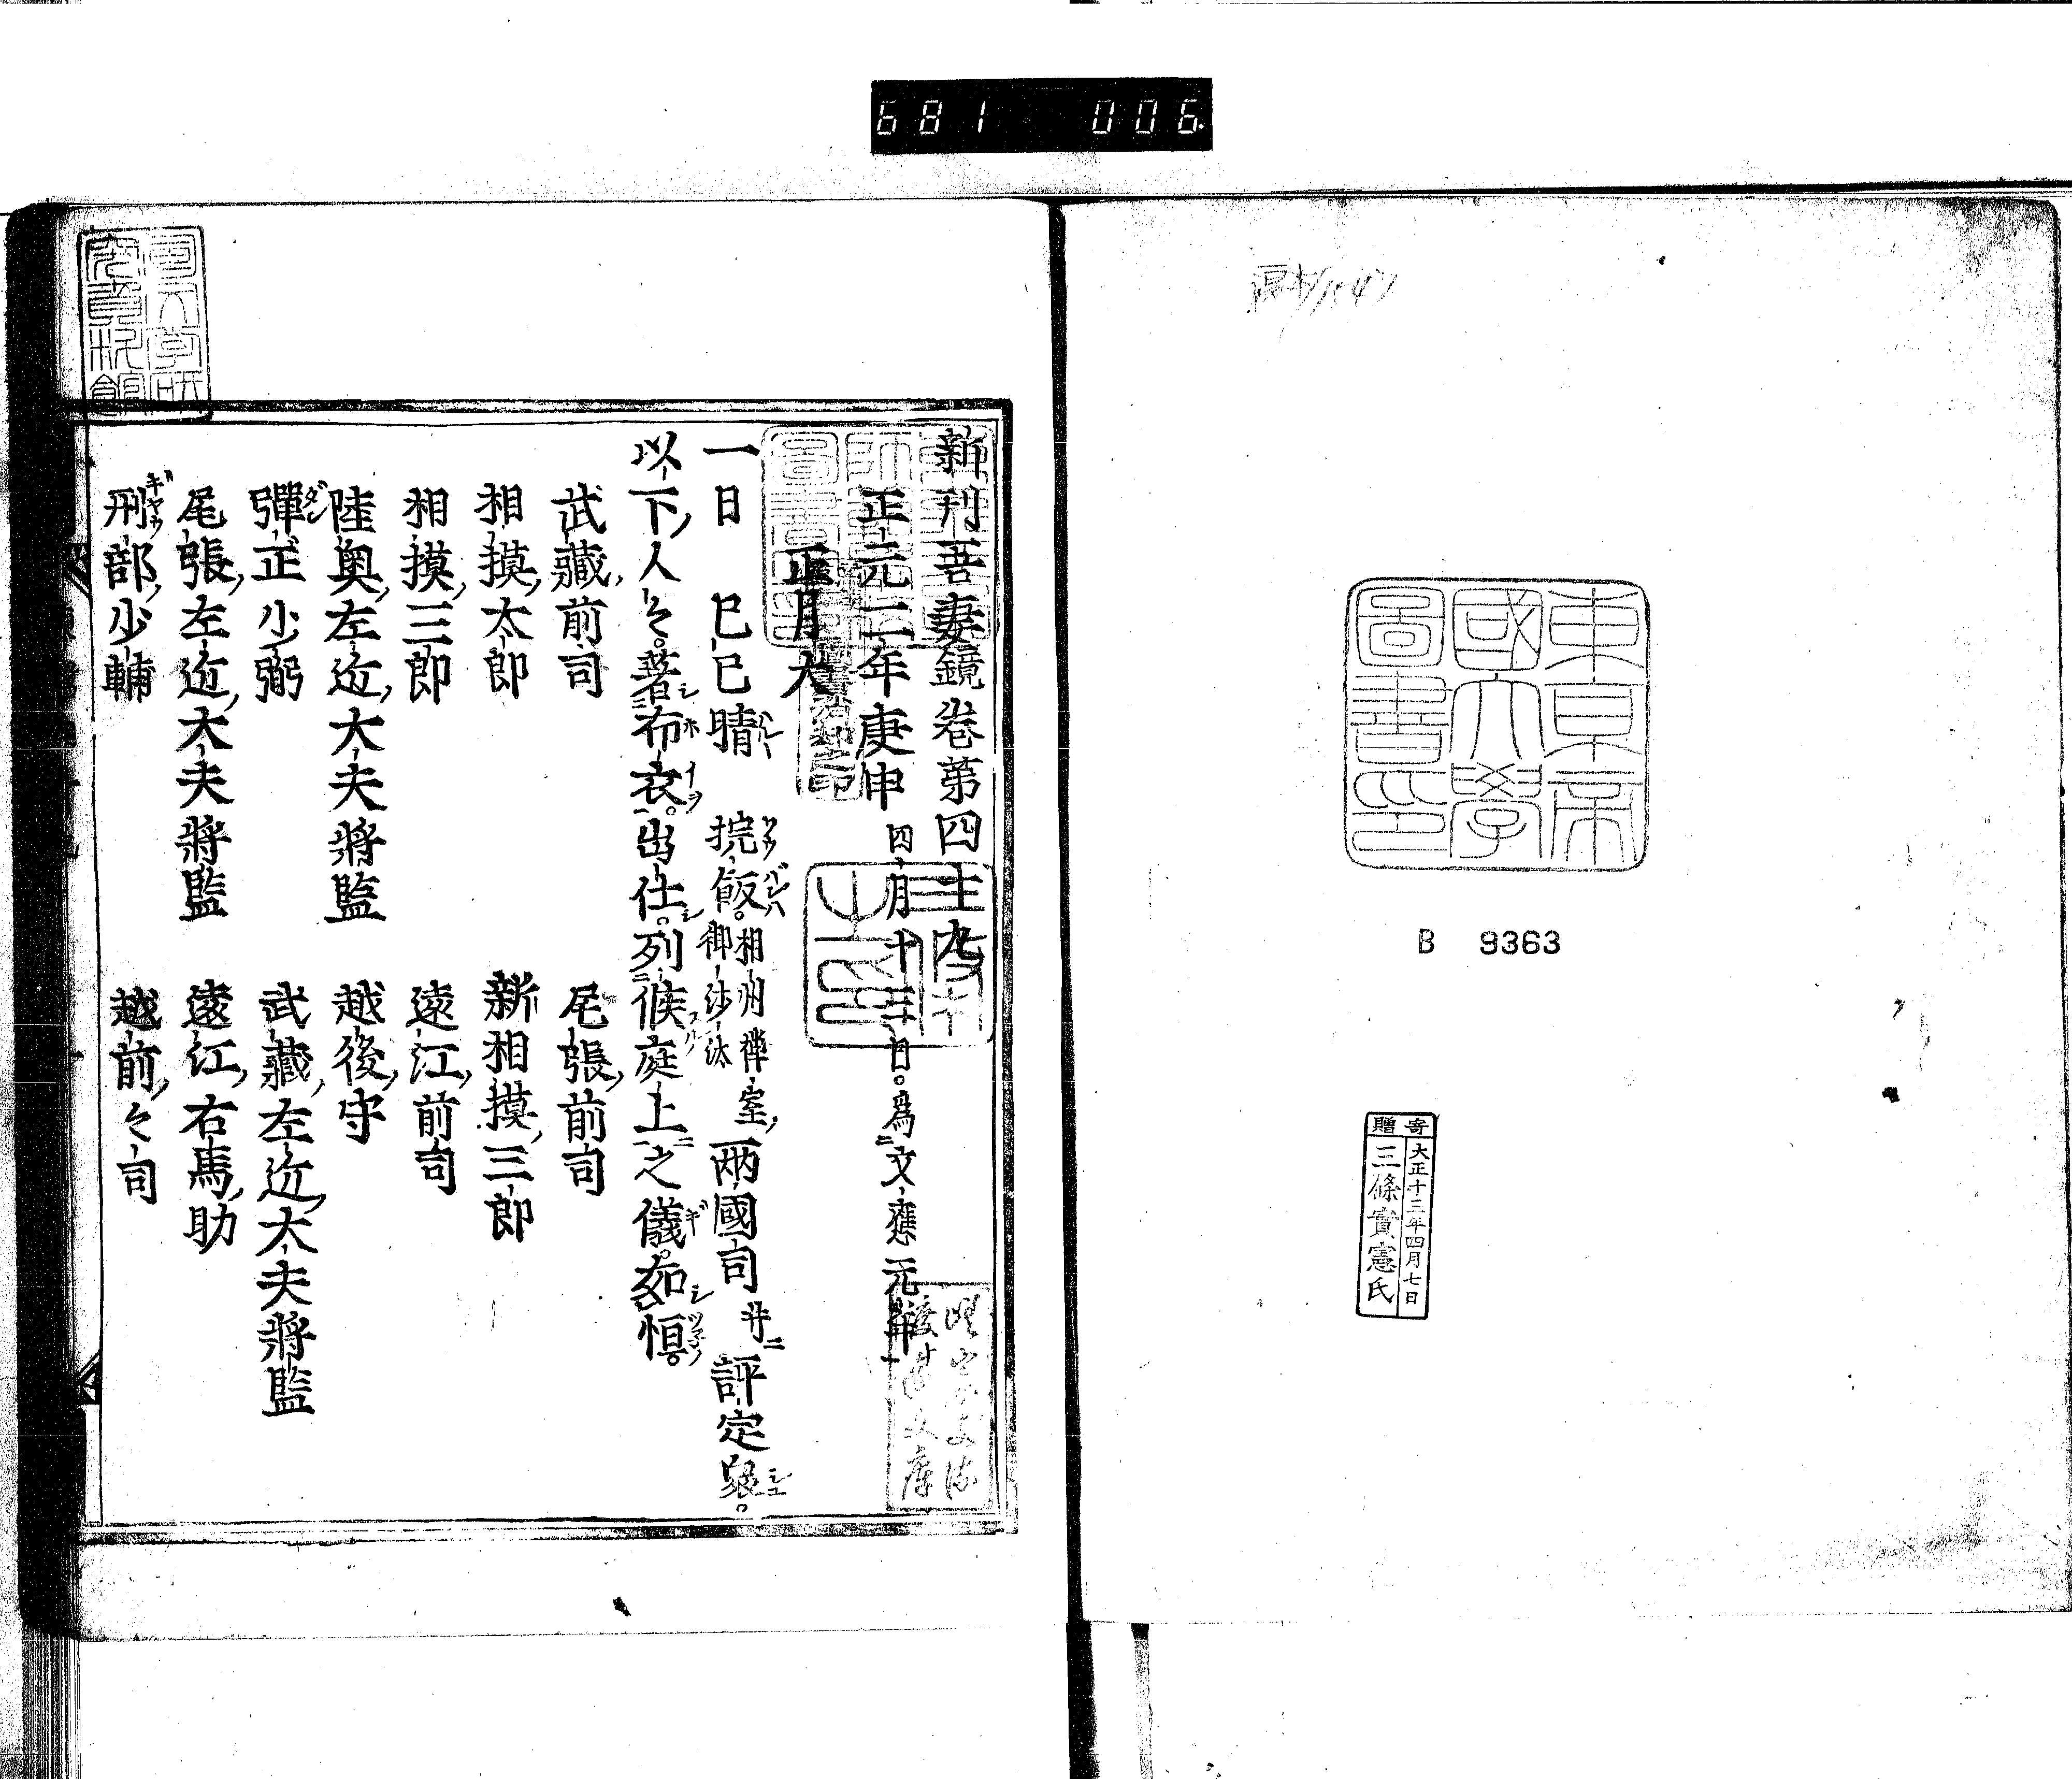 681 006
東京帝
國大學
圖書印
B 9363
寄贈
大正十三年四月七日
三條實憲氏
新刊吾妻鏡卷第四十九
正元二年庚申 四月十三日。爲文應元年
正月大
一日 己巳晴 捥飯。相州禅室御沙汰 兩國司并評定衆。
以下人々。著布衣。出仕。列候庭上之儀。如恒。
武藏前司 尾張前司
相摸太郎 新相摸三郎
相摸三郎 遠江前司
陸奥左近大夫將監 越後守
彈正少弼 武藏左近大夫將監
尾張左近大夫將監 遠江右馬助
刑部少輔 越前々司